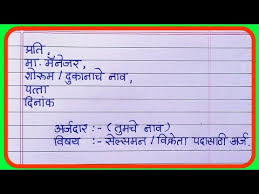 प्रति,
मा. मॅनेजर,
शोरुम / दुकानाचे नाव,
पत्ता
दिनांक
अर्जदार :- (तुमचे नाव)
विषय :- सेल्समन / विक्रेता पदासाठी अर्ज.